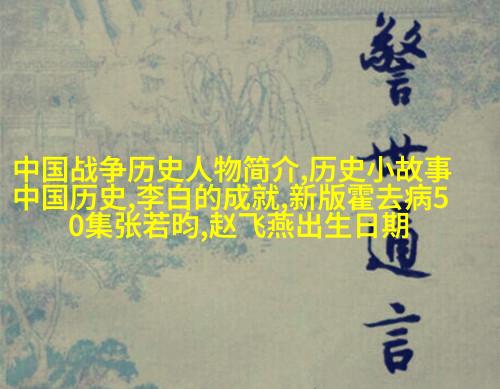 中国战争历史人物简介,历史小故事
中国历史,李白的成就,新版霍去病5
0集张若昀,赵飞燕出生日期
警世通言